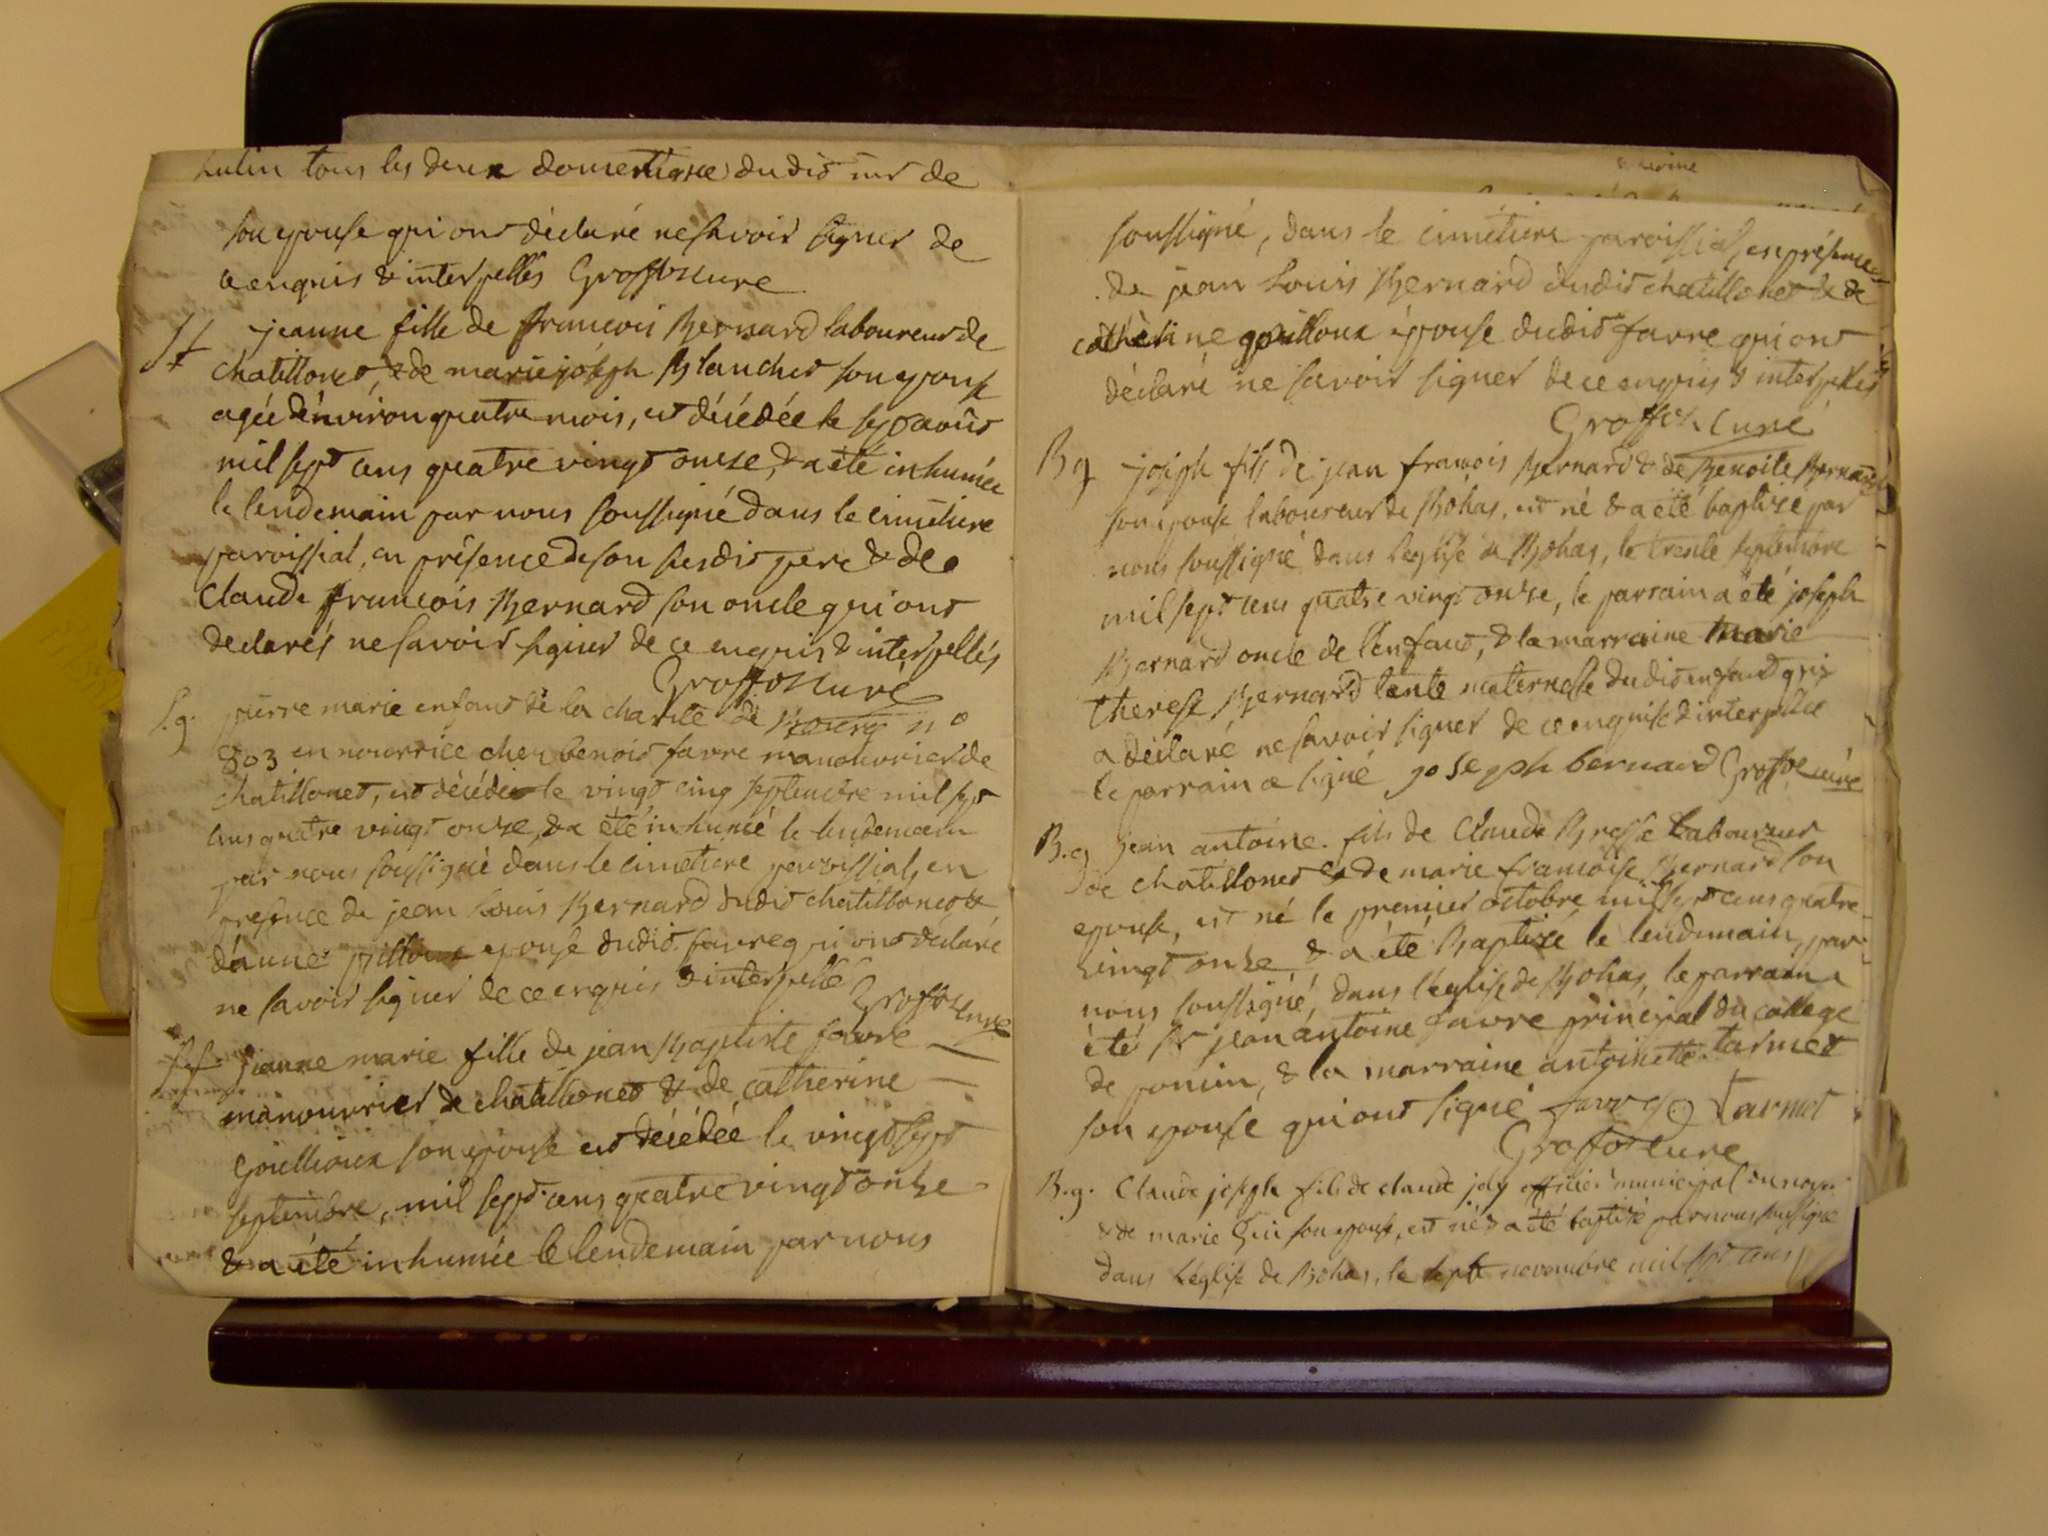 tous les deux domestique dudit sr de
son epouse qui ont déclaré ne savoir signer de
ce enquis & interpellés Groffoz cure
S f jeanne fille de francois Bernard laboureur de
chatillonet, & de marie joseph Blanchet son epouse
agée d'environ quatre mois, est décédée le sept août
mil sept cens quatre vingt onze, & a été inhumée
le lendemain par nous soussigné dans le cimetiere
paroissial, en présence de son susdit pere & de
Claude francois Bernard son oncle qui ont
declarés ne savoir signer de ce enquis & interpellés
Groffoz cure
S.g. pierre marie enfant de la charité de Bourg n°
803 en nourrice chez benoit favre manouvrier de
chatillonet, est décédé le vingt cinq septembre mil sept
cens quatre vingt onze, & a été inhumé le lendemain
par nous soussigné dans le cimetiere paroissial, en
presence de jean Louis Bernard dudit chatillonet &
d'anne epouse dudit favre qui ont declaré
ne savoir signer de ce enquis & interpellé
Groffoz cure
S f jeanne marie fille de jean Baptiste favre
manouvrier de chatillonet & de catherine
Gouilloux son epouse est décédée le vingt sept
septembre, mil sept cens quatre vingt onze
& a été inhumée le lendemain par nous
soussigné, dans le cimetiere paroissial, en présence
de jean Louis Bernard dudit chatillonet & de
cathèrine gouilloux épouse dudit favre qui ont
déclaré ne savoir signer de ce enquis & interpellés
Groffoz curé
B g joseph fils de jean francois Bernard & de Benoite Bernard
son epouse laboureur de Bohas, est né & a été baptizé par
nous soussigné dans l'eglise de Bohas, le trente septembre
mil sept cens quatre vingt onze, le parrain a été joseph
Bernard oncle de l'enfant, & la marraine Marie
Therese Bernard tante maternelle dudit enfant qui
a déclaré ne savoir signer de ce enquise & interpellée
le parrain a signé joseph bernard Groffoz cure
B.g jean antoine fils de Claude Bresse Laboureur
de chatillonet & de marie francoise Bernard son
epouse, est né le premier octobre mil sept cens quatre
vingt onze, & a été Baptizé le lendemain, par
nous soussigné, dans l'eglise de Bohas, le parrain a
été Sr jean antoine favre principal du college
de poncin, & la marraine antoinette tarmet
son epouse qui ont signé favre Tarmet
Groffoz cure
B.g. Claude joseph fils de claude joly officier municipal
& de marie son epouse, est né & a été baptizé par nous soussigné
dans l'église de Bohas, le sept novembre mil sept cens